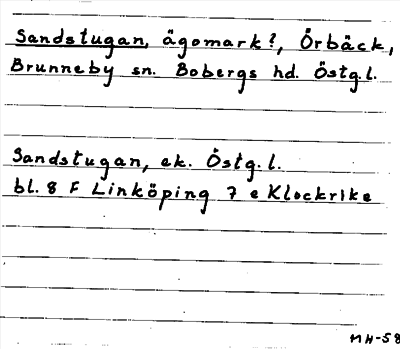 Sandstugan, ägomark?, Örbäck,
Brunneby sn. Bobergs hd. Östg.l.
Sandstugan, ek. Östg.l.
bl. 8 F Linköping 7 e Klockrike
MH-58